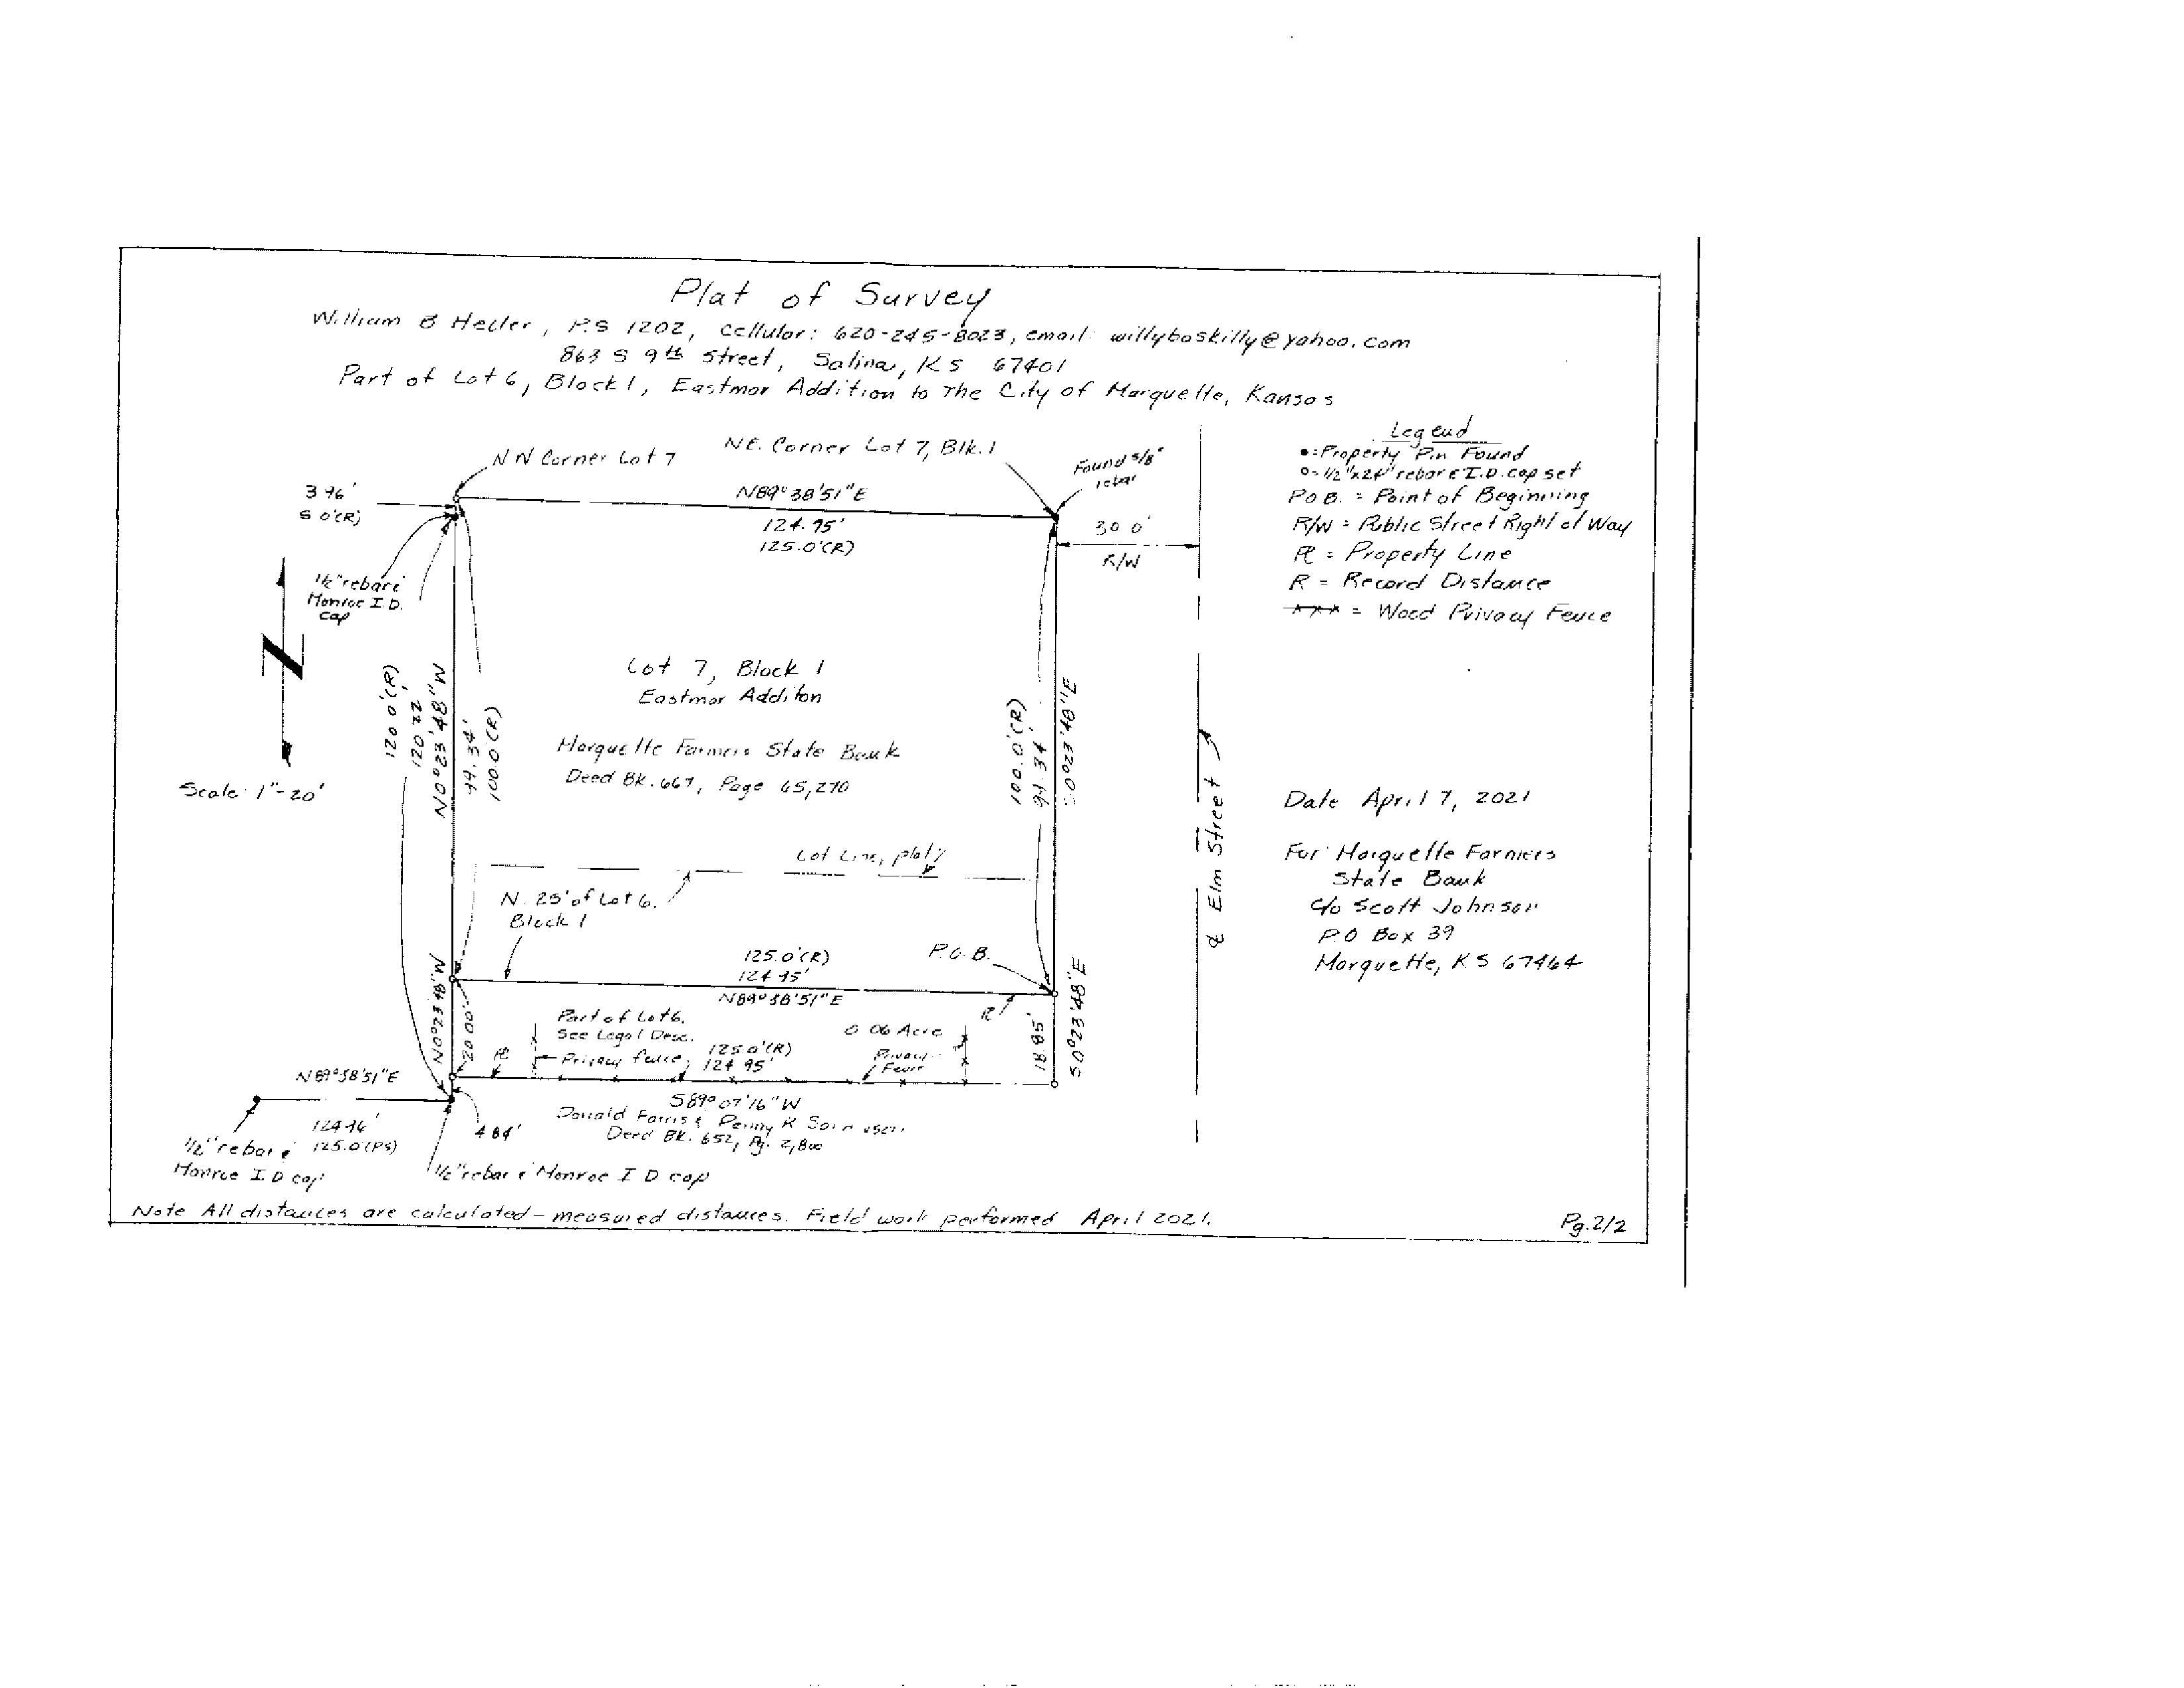 Plat of Survey
William B Heller, P.S 1202, Cellular: 620-245-8023, email: willyboskilly@yahoo.com
863 S 9th Street, Salina, KS 67401
Part of Lot 6, Block 1, Eastmor Addition to The City of Marquette, Kansas
Legend
•=Property Pin Found
o=1/2"x24" rebar & I.D. cap set
P.O.B. = Point of Beginning
R/W = Public Street Right of Way
PL = Property Line
R = Record Distance
xxx = Wood Privacy Fence
NW Corner Lot 7
NE. Corner Lot 7, Blk. 1
Found 5/8"
rebar
3.96'
5.0'(R)
N89°38'51"E
124.95'
125.0'(R)
30.0'
R/W
1/2" rebar &
Monroe I.D.
cap
N
Scale: 1"=20'
120.0'(R)
120.22'
N0°23'48"W
99.34'
100.0'(R)
Lot 7, Block 1
Eastmor Additon
Marquette Farmers State Bank
Deed Bk. 667, Page 65,270
100.0'(R)
99.34'
S0°23'48"E
℄ Elm Street
Date April 7, 2021
For: Marquette Farmers
State Bank
c/o Scott Johnson
P.O Box 39
Marquette, KS 67464
Lot Line, plat
N. 25' of Lot 6.
Block 1
125.0'(R)
124.95'
N89°38'51"E
P.O.B.
PL
N0°23'48"W
20.00'
Part of Lot 6.
See Legal Desc.
Privacy fence
PL
125.0'(R)
124.95'
0.06 Acre
Privacy
Fence
18.85'
S0°23'48"E
S89°07'16"W
Donald Farris & Penny R
Deed Bk. 652, Pg. 2,800
N89°38'51"E
124.96'
125.0'(PS)
4.84'
1/2" rebar &
Monroe I.D cap
1/2" rebar & Monroe I D cap
Note All distances are calculated - measured distances. Field work performed April 2021.
Pg. 2/2